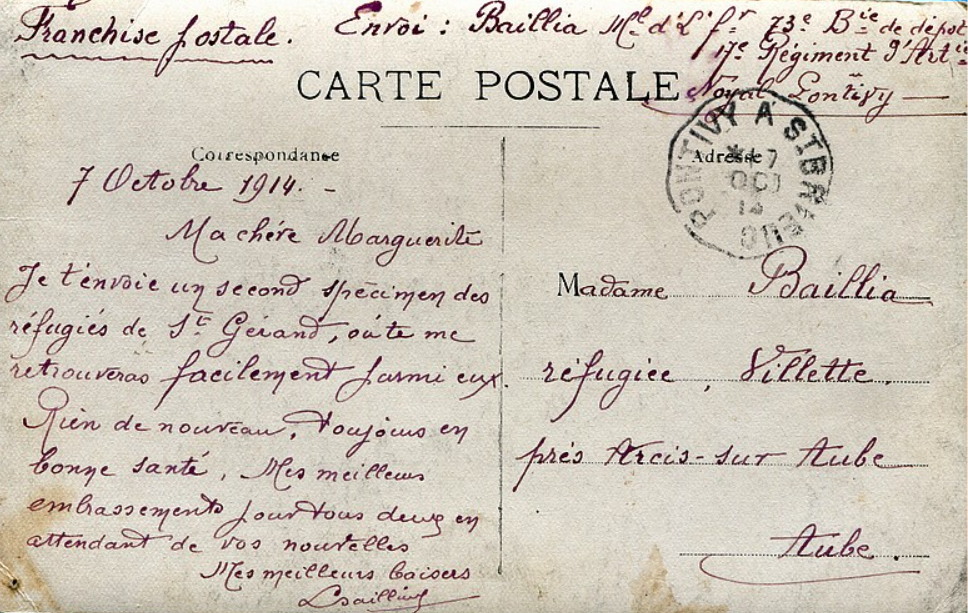 Franchise postale. Envoi : Baillia Mal d' L f r 73e Bie de dépôt
17e Régiment d'Artie
Noyal Pontivy —
CARTE POSTALE
Correspondanse
Adresse
PONTIVY A ST BRIEUC
7
OCT
14
7 Octobre 1914. -
Ma chére Marguerite
Je t'envoie un second spécimen des
réfugiés de St Gérand, où te me
retrouveras facilement parmi eux.
Rien de nouveau, toujours en
bonne santé, Mes meilleurs
embrassements pour tous deux en
attendant de vos nouvelles
Mes meilleurs baisers
Baillia
Madame Baillia
réfugiée, Villette.
prés Arcis-sur Aube
Aube.